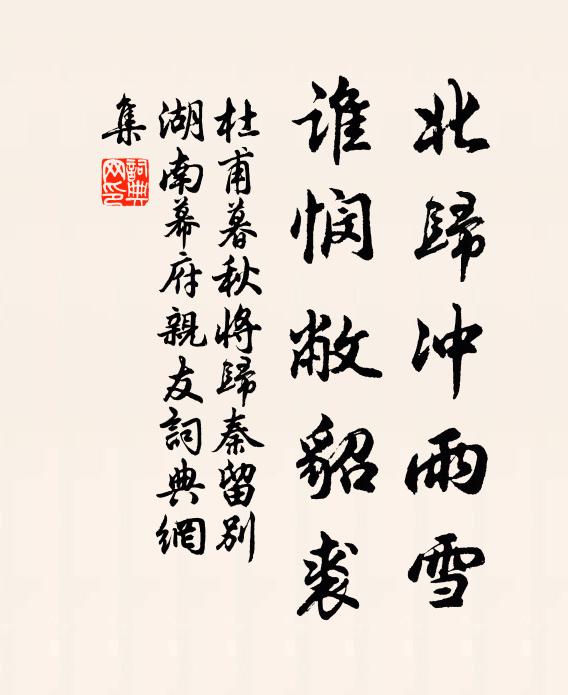 北歸冲雨雪
誰憫敝貂裘
杜甫暮秋将歸秦留別
湖南幕府親友詞典網
集
詞典
网印